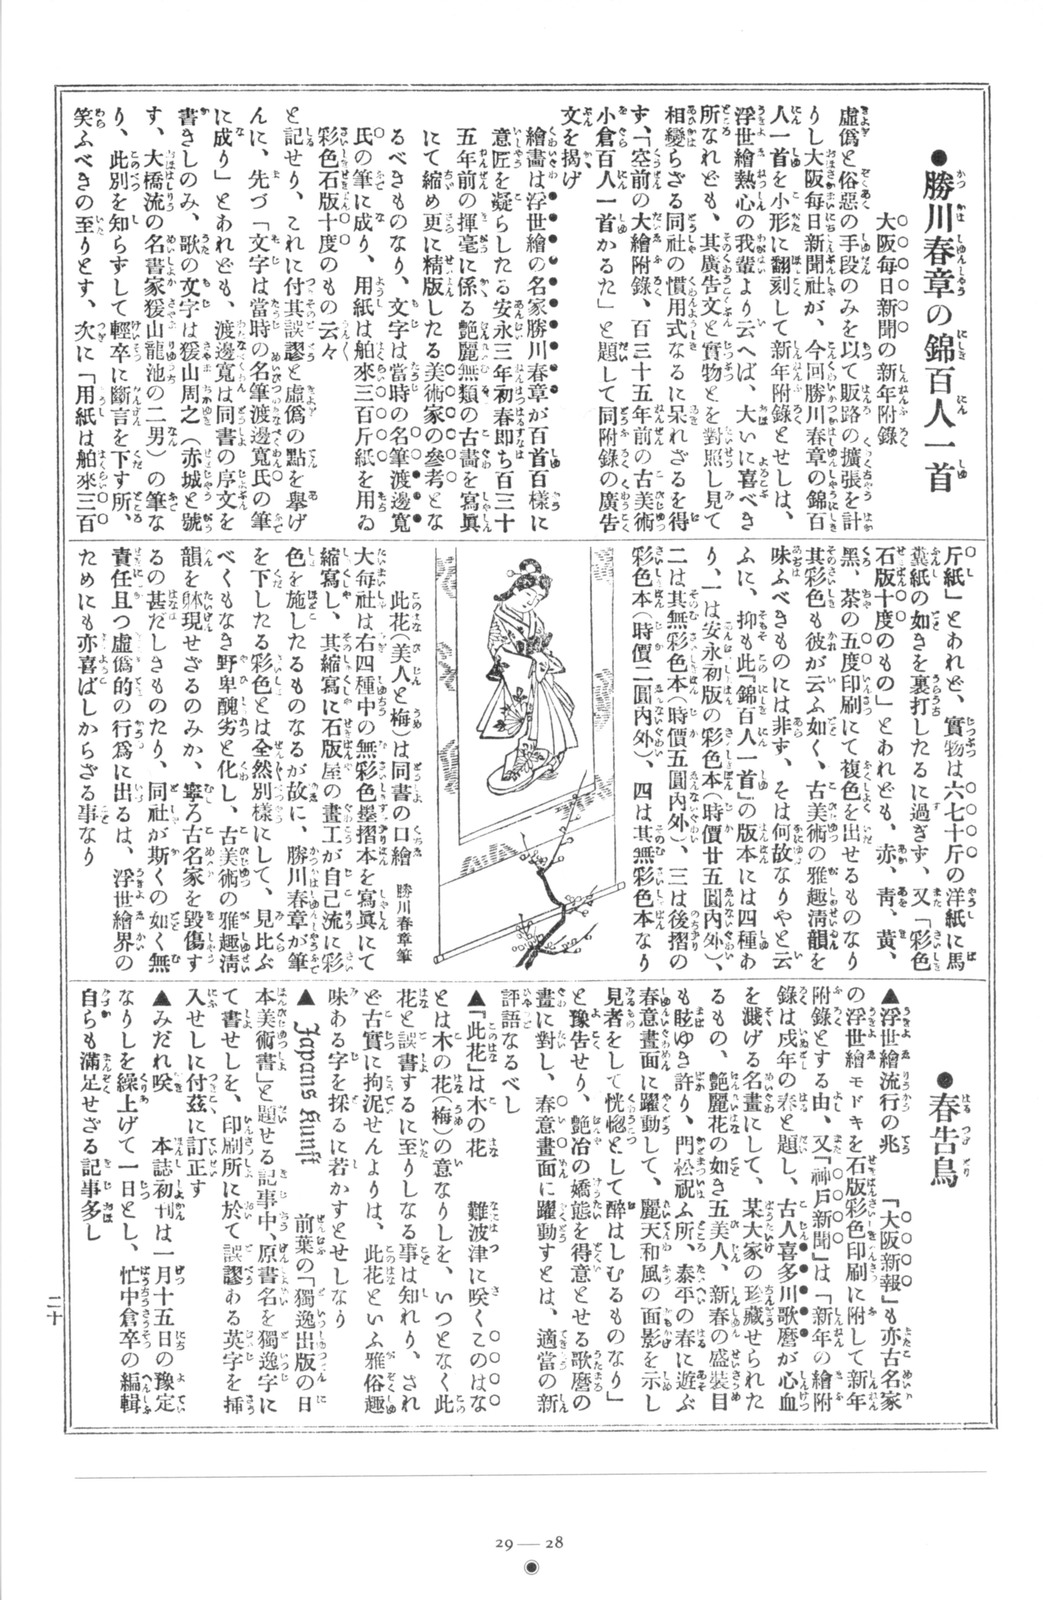 ●勝川春章の錦百人一首
大阪每日新聞の新年附錄
虛僞と俗惡の手段のみを以て販路の擴張を計
りし大阪每日新聞社が、今回勝川春章の錦百
人一首を小形に翻刻して新年附錄とせしは、
浮世繪熱心の我輩より云へば、大いに喜べき
所なれども、其廣告文と實物とを對照し見て
相變らざる同社の慣用式なるに呆れざるを得
ず、「空前の大繪附錄、百三十五年前の古美術
小倉百人一首かるた」と題して同附錄の廣告
文を揭げ
繪畵は浮世繪の名家勝川春章が百首百樣に
意匠を凝らしたる安永三年初春卽ち百三十
五年前の揮毫に係る艶麗無類の古畵を寫眞
にて縮め更に精版したる美術家の參考とな
るべきものなり、文字は當時の名筆渡邊寬
氏の筆に成り、用紙は舶來三百斤紙を用ゐ
彩色石版十度のもの云々
と記せり、これに付其誤謬と虛僞の點を擧げ
んに、先づ「文字は當時の名筆渡邊寬氏の筆
に成り」とあれども、渡邊寬は同書の序文を
書きしのみ、歌の文字は猨山周之(赤城と號
す、大橋流の名書家猨山龍池の二男)の筆な
り、此別を知らずして輕卒に斷言を下す所、
笑ふべきの至りとす、次に「用紙は舶來三百
斤紙」とあれど、實物は六七十斤の洋紙に馬
糞紙の如きを裏打したるに過ぎず、又「彩色
石版十度のもの」とあれども、赤、靑、黃、
黑、茶の五度印刷にて複色を出せるものなり
其彩色も彼が云ふ如く、古美術の雅趣淸韻を
味ふべきものには非ず、そは何故なりやと云
ふに、抑も此『錦百人一首』の版本には四種あ
り、一は安永初版の彩色本(時價廿五圓內外)、
二は其無彩色本(時價五圓內外)、三は後摺の
彩色本(時價二圓內外)、四は其無彩色本なり
此花(美人と梅)は同書の口繪 勝川春章筆
大每社は右四種中の無彩色墨摺本を寫眞にて
縮寫し、其縮寫に石版屋の畫工が自己流に彩
色を施したるものなるが故に、勝川春章が筆
を下したる彩色とは全然別樣にして、見比ぶ
べくもなき野卑醜劣と化し、古美術の雅趣淸
韻を躰現せざるのみか、寧ろ古名家を毀傷す
るの甚だしきものたり、同社が斯くの如く無
責任且つ虛僞的の行爲に出るは、浮世繪界の
ためにも亦喜ばしからざる事なり
●春告鳥
▲浮世繪流行の兆 「大阪新報」も亦古名家
の浮世繪モドキを石版彩色印刷に附して新年
附錄とする由、又『神戶新聞』は「新年の繪附
錄は戍年の春と題し、古人喜多川歌麿が心血
を濺げる名畵にして、某大家の珍藏せられた
るもの、艶麗花の如き五美人、新春の盛裝目
も眩ゆき許り、門松祝ふ所、泰平の春に遊ぶ
春意畵面に躍動して、麗天和風の面影を示し
見者をして恍惚として醉はしむるものなり」
と豫告せり、艶冶の嬌態を得意とせる歌麿の
畵に對し、春意畵面に躍動すとは、適當の新
評語なるべし
▲「此花」は木の花 難波津に咲くこのはな
とは木の花(梅)の意なりしを、いつとなく此
花と誤書するに至りしなる事は知れり、され
ど古實に拘泥せんよりは、此花といふ雅俗趣
味ある字を採るに若かずとせしなり
▲ Japans Kunst 前葉の「獨逸出版の日
本美術書」と題せる記事中、原書名を獨逸字に
て書せしを、印刷所に於て誤謬ある英字を揷
入せしに付玆に訂正す
▲みだれ咲 本誌初刊は一月十五日の豫定
なりしを繰上げて一日とし、忙中倉卒の編輯
自らも滿足せざる記事多し
二十
29—28